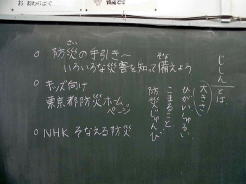 じしんとは
大きさ
ひがい しゅるい
こまること
防災じゅんび
○ 防災の手引き〜
さい
いろいろな災害を知って備えよう
そな
○ キッズ向け
東京都防災ホームページ
○ NHK そなえる防災